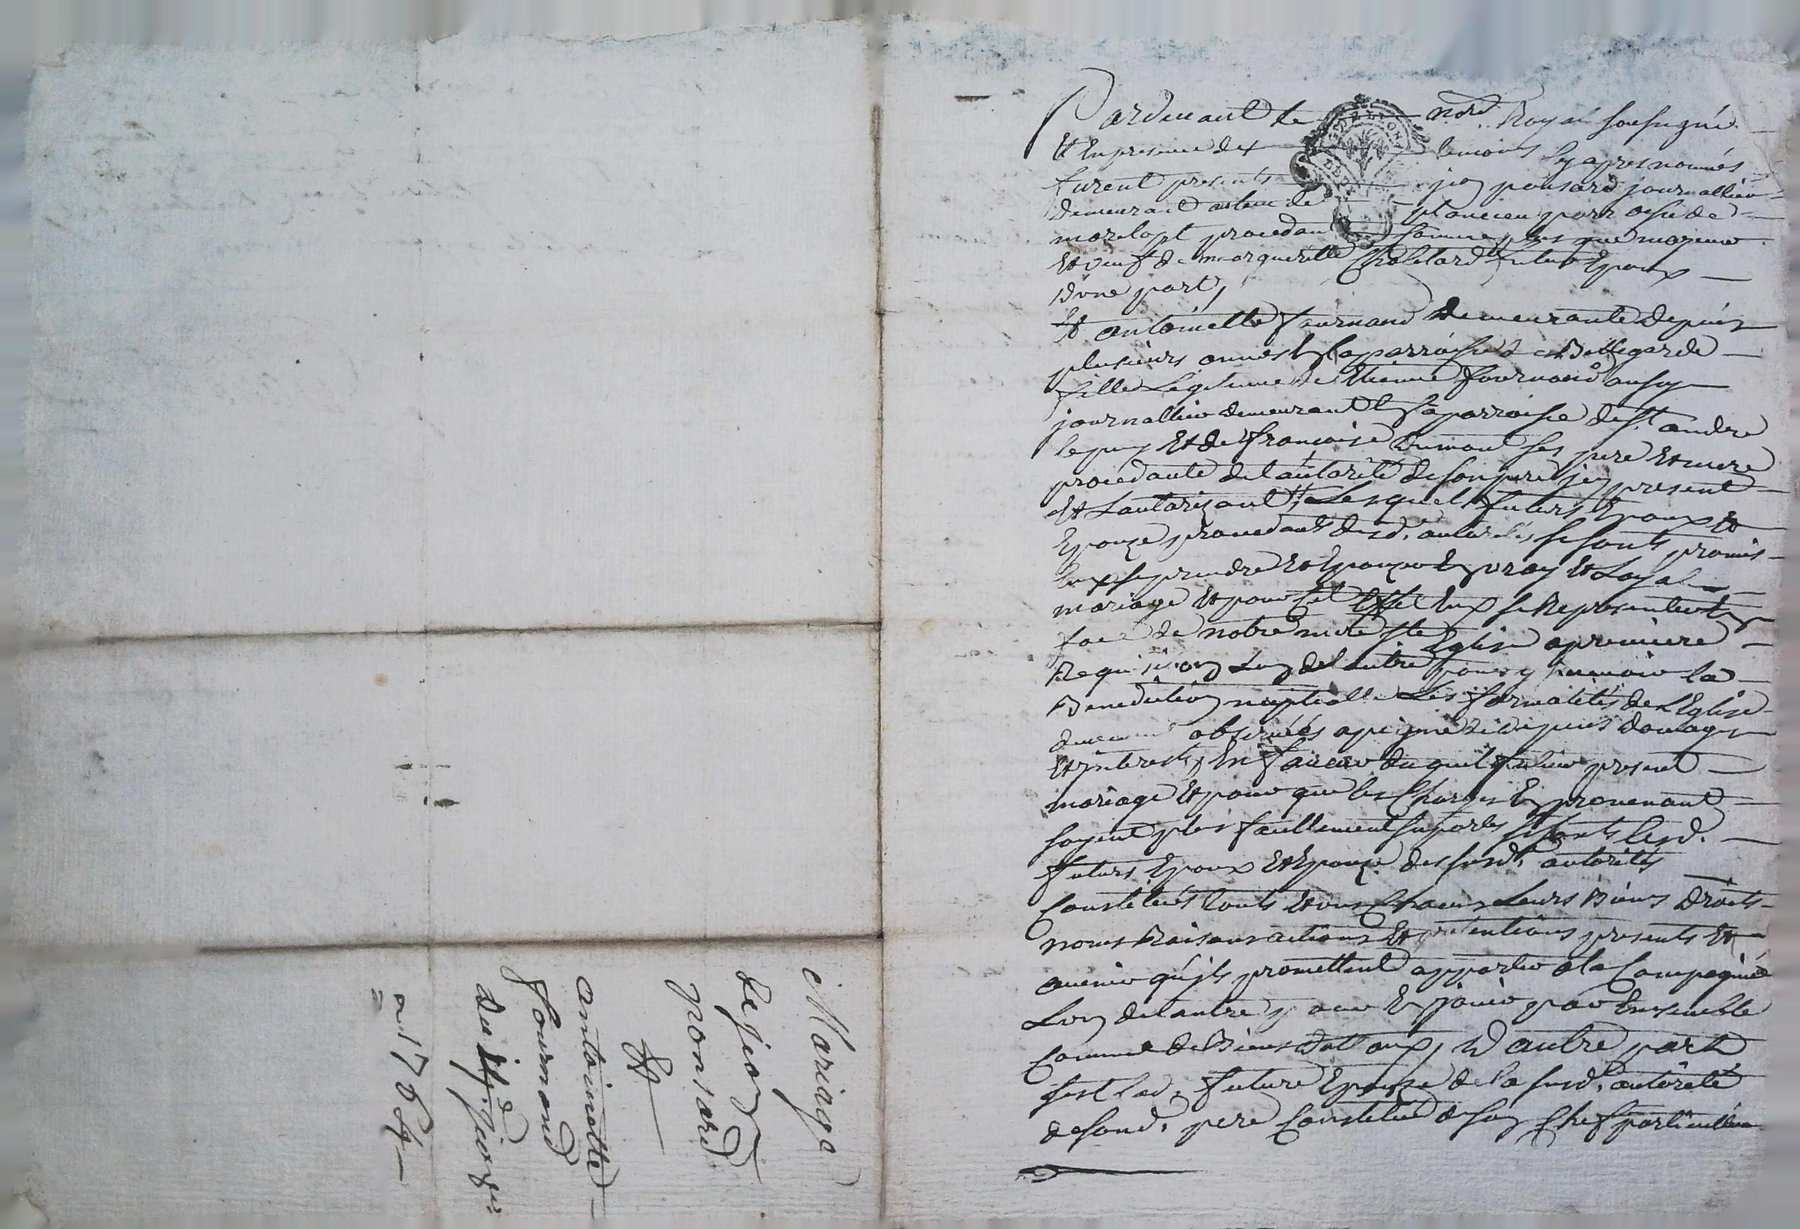 Pardevant le nore. Royal soussigné
Et En presence des temoins Cy apres nommés
furent presents jean ponsard journallier
demeurant au lieu de plancien parroisse de
procedant comme plus que majeur
Et veuf de margueritte Chalitard futur Epoux
D'une part,
Et antoinette fournand Demeurante depuis
plusieurs années En la parroisse de Bellegarde
fille Legitime de Etienne fournand aussy
journallier demeurant En la parroisse de St. andré
le puy Et de françoise dumont ses pere Et mere
procedante de l'autorité de son pere jcy present
Et Lautorizant, Lesquels futurs Epoux Et
Epouze procedants desd. autorités se sonts promis
Eux se prendre Et Epouzer En vray Et Loyal
mariage Et pour Cet Effet Eux se Representer En
face de notre mere Ste Eglise a premiere
Requisition Lun de Lautre pour y recevoir la
Benediction nuptialle Les formalités de L'Eglise
duement observées a peine de tous depens domages
Et interests, En faveur duquel futur present
mariage Et pour que les Charges En provenant
soyent plus facillement suportés se sonts lesd.
futurs Epoux Et Epouze des susd. autorités
Constitués touts Et uns Chacuns Leurs Biens Droits
noms Raisons actions Et pretentions presents Et
avenir qu'jls promettent apporter a la Compagnie
Lun de Lautre pour En jouir par Ensemble
Comme de Biens dottaux, D'autre part
sest lad. future Epouze de la susd. autorité
de sond. pere Constitué de son Chef particullier
Mariage
de jean
ponsard
Et
antoinette
fournand
du
1764